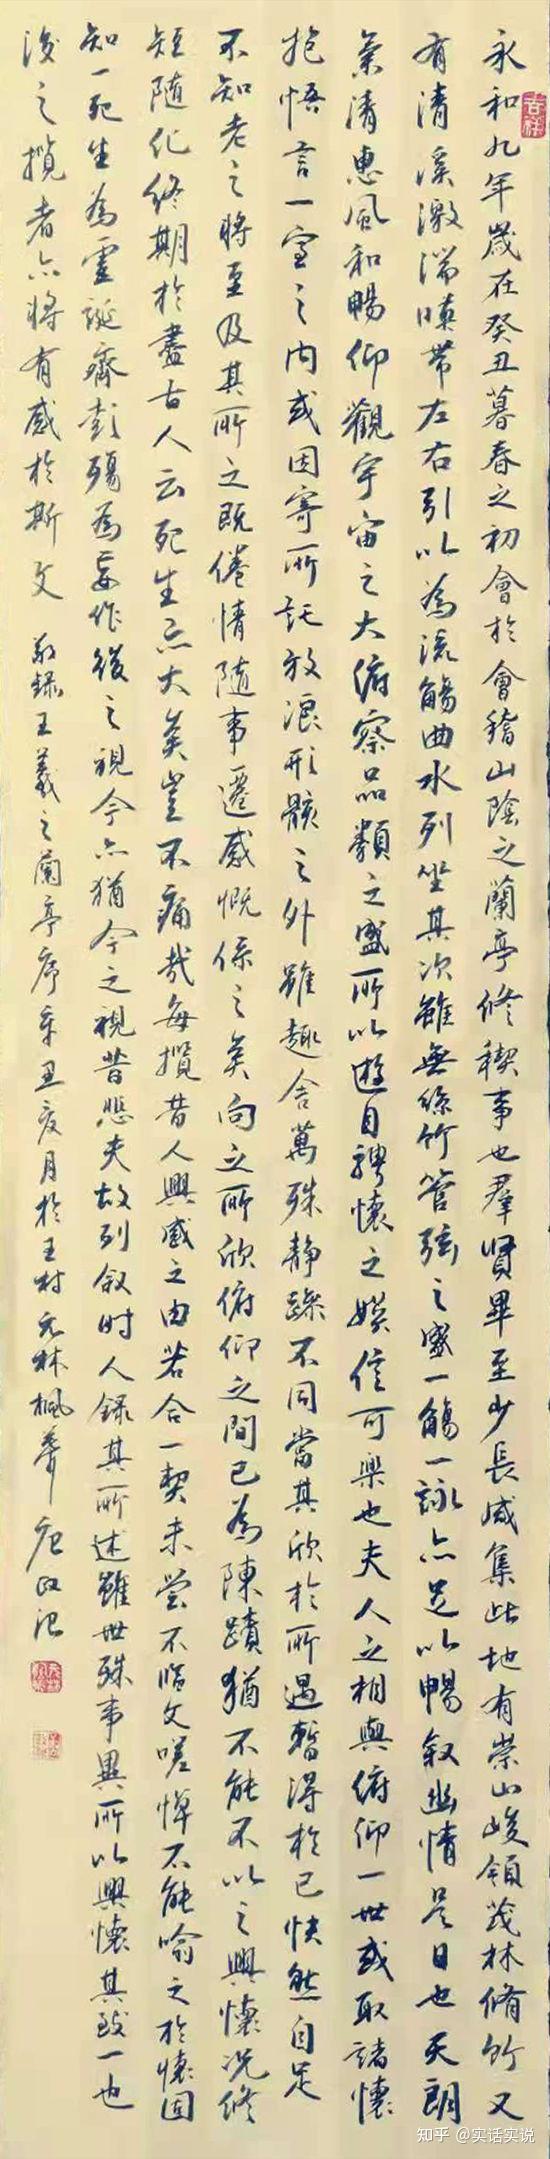 吉祥
永和九年歲在癸丑暮春之初會於會稽山陰之蘭亭修稧事也羣賢畢至少長咸集此地有崇山峻領茂林脩竹又
有清溪激湍暎帶左右引以為流觴曲水列坐其次雖無絲竹管弦之盛一觴一詠亦足以暢敘幽情是日也天朗
氣清惠風和暢仰觀宇宙之大俯察品類之盛所以遊目騁懷之娛信可樂也夫人之相與俯仰一世或取諸懷
抱悟言一室之內或因寄所託放浪形骸之外雖趣舍萬殊静躁不同當其欣於所遇暫得於己快然自足
不知老之將至及其所之既倦情隨事遷感慨係之矣向之所欣俯仰之間已為陳蹟猶不能不以之興懷況修
短隨化終期於盡古人云死生亦大矣豈不痛哉每攬昔人興感之由若合一契未嘗不臨文嗟悼不能喻之於懷固
知一死生為虛誕齊彭殤為妄作後之視今亦猶今之視昔悲夫故列敘時人錄其所述雖世殊事異所以興懷其致一也
後之攬者亦將有感於斯文 敬錄王羲之蘭亭序辛丑夏月於王村元林楓
知乎 @实话实说